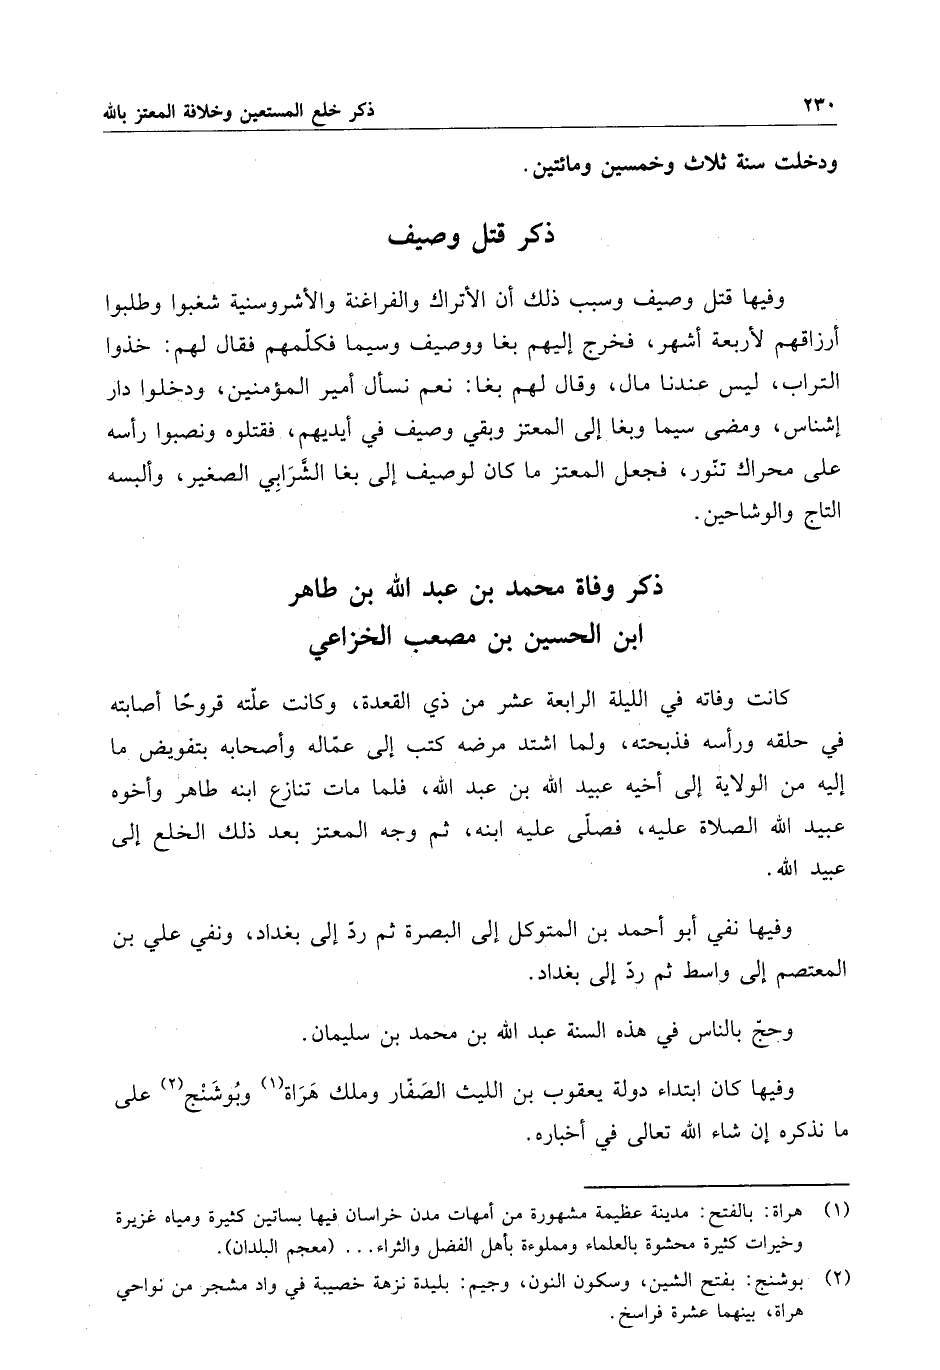 ٢٣٠
ذكر خلع المستعين وخلافة المعتز بالله
ودخلت سنة ثلاث وخمسين ومائتين.
ذكر قتل وصيف
وفيها قتل وصيف وسبب ذلك أن الأتراك والفراغنة والأشروسنية شغبوا وطلبوا
أرزاقهم لأربعة أشهر، فخرج إليهم بغا ووصيف وسيما فكلّمهم فقال لهم: خذوا
التراب، ليس عندنا مال، وقال لهم بغا: نعم نسأل أمير المؤمنين، ودخلوا دار
إشناس، ومضى سيما وبغا إلى المعتز وبقي وصيف في أيديهم، فقتلوه ونصبوا رأسه
على محراك تنّور، فجعل المعتز ما كان لوصيف إلى بغا الشَّرَابِي الصغير، وألبسه
التاج والوشاحين.
ذكر وفاة محمد بن عبد الله بن طاهر
ابن الحسين بن مصعب الخزاعي
كانت وفاته في الليلة الرابعة عشر من ذي القعدة، وكانت علّته قروحًا أصابته
في حلقه ورأسه فذبحته، ولما اشتد مرضه كتب إلى عمّاله وأصحابه بتفويض ما
إليه من الولاية إلى أخيه عبيد الله بن عبد الله، فلما مات تنازع ابنه طاهر وأخوه
عبيد الله الصلاة عليه، فصلّى عليه ابنه، ثم وجه المعتز بعد ذلك الخلع إلى
عبيد الله.
وفيها نفي أبو أحمد بن المتوكل إلى البصرة ثم ردّ إلى بغداد، ونفي علي بن
المعتصم إلى واسط ثم ردّ إلى بغداد.
وحجّ بالناس في هذه السنة عبد الله بن محمد بن سليمان.
وفيها كان ابتداء دولة يعقوب بن الليث الصَفّار وملك هَرَاة(١) وبُوشَنْج(٢) على
ما نذكره إن شاء الله تعالى في أخباره.
(١) هراة: بالفتح: مدينة عظيمة مشهورة من أمهات مدن خراسان فيها بساتين كثيرة ومياه غزيرة
وخيرات كثيرة محشوة بالعلماء ومملوءة بأهل الفضل والثراء... (معجم البلدان).
(٢) بوشنج: بفتح الشين، وسكون النون، وجيم: بليدة نزهة خصيبة في واد مشجر من نواحي
هراة، بينهما عشرة فراسخ.